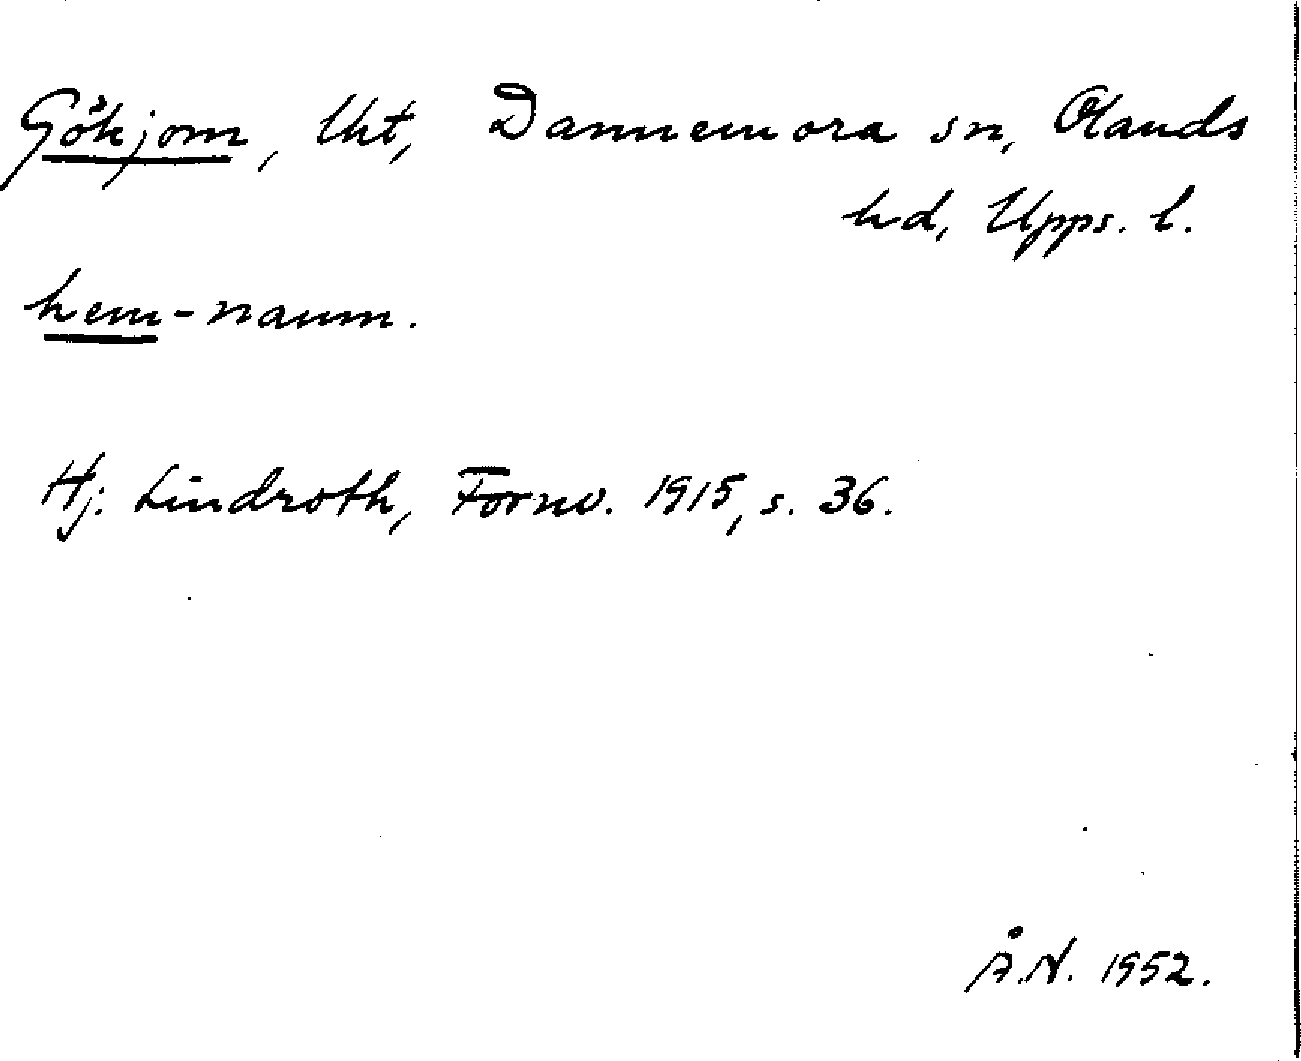 Gökjom, Uht, Dannemora sn, Olands
hd, Upps. l.
hem-namn.
Hj. Lindroth, Fornv. 1915, s. 36.
Å.N. 1952.